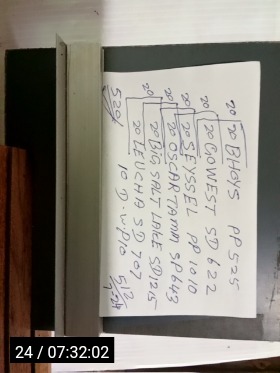 20 20 BHGYS PP 525
20 20 COWEST SD 622
20 20 SEYSSEL PP 1010
20 20 OSCARTAMM SP 643
20 20 BIG SALT LAKE SD 1215
20 LEUCHA SD 707
10 D.WP10
520/-
512
24 / 07:32:02